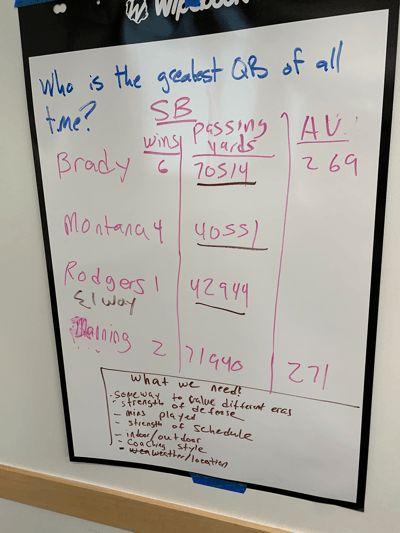 Wipebook
Who is the greatest QB of all
time?
SB
wins passing yards AV.
Brady 6 70514 269
Montana 4 40551
Rodgers 1 42944
Elway
Manning 2 71940 271
What we need?
- some way to value different eras
- strength of defense
- mins played
- strength of schedule
- indoor/outdoor
- coaching style
- weather/location